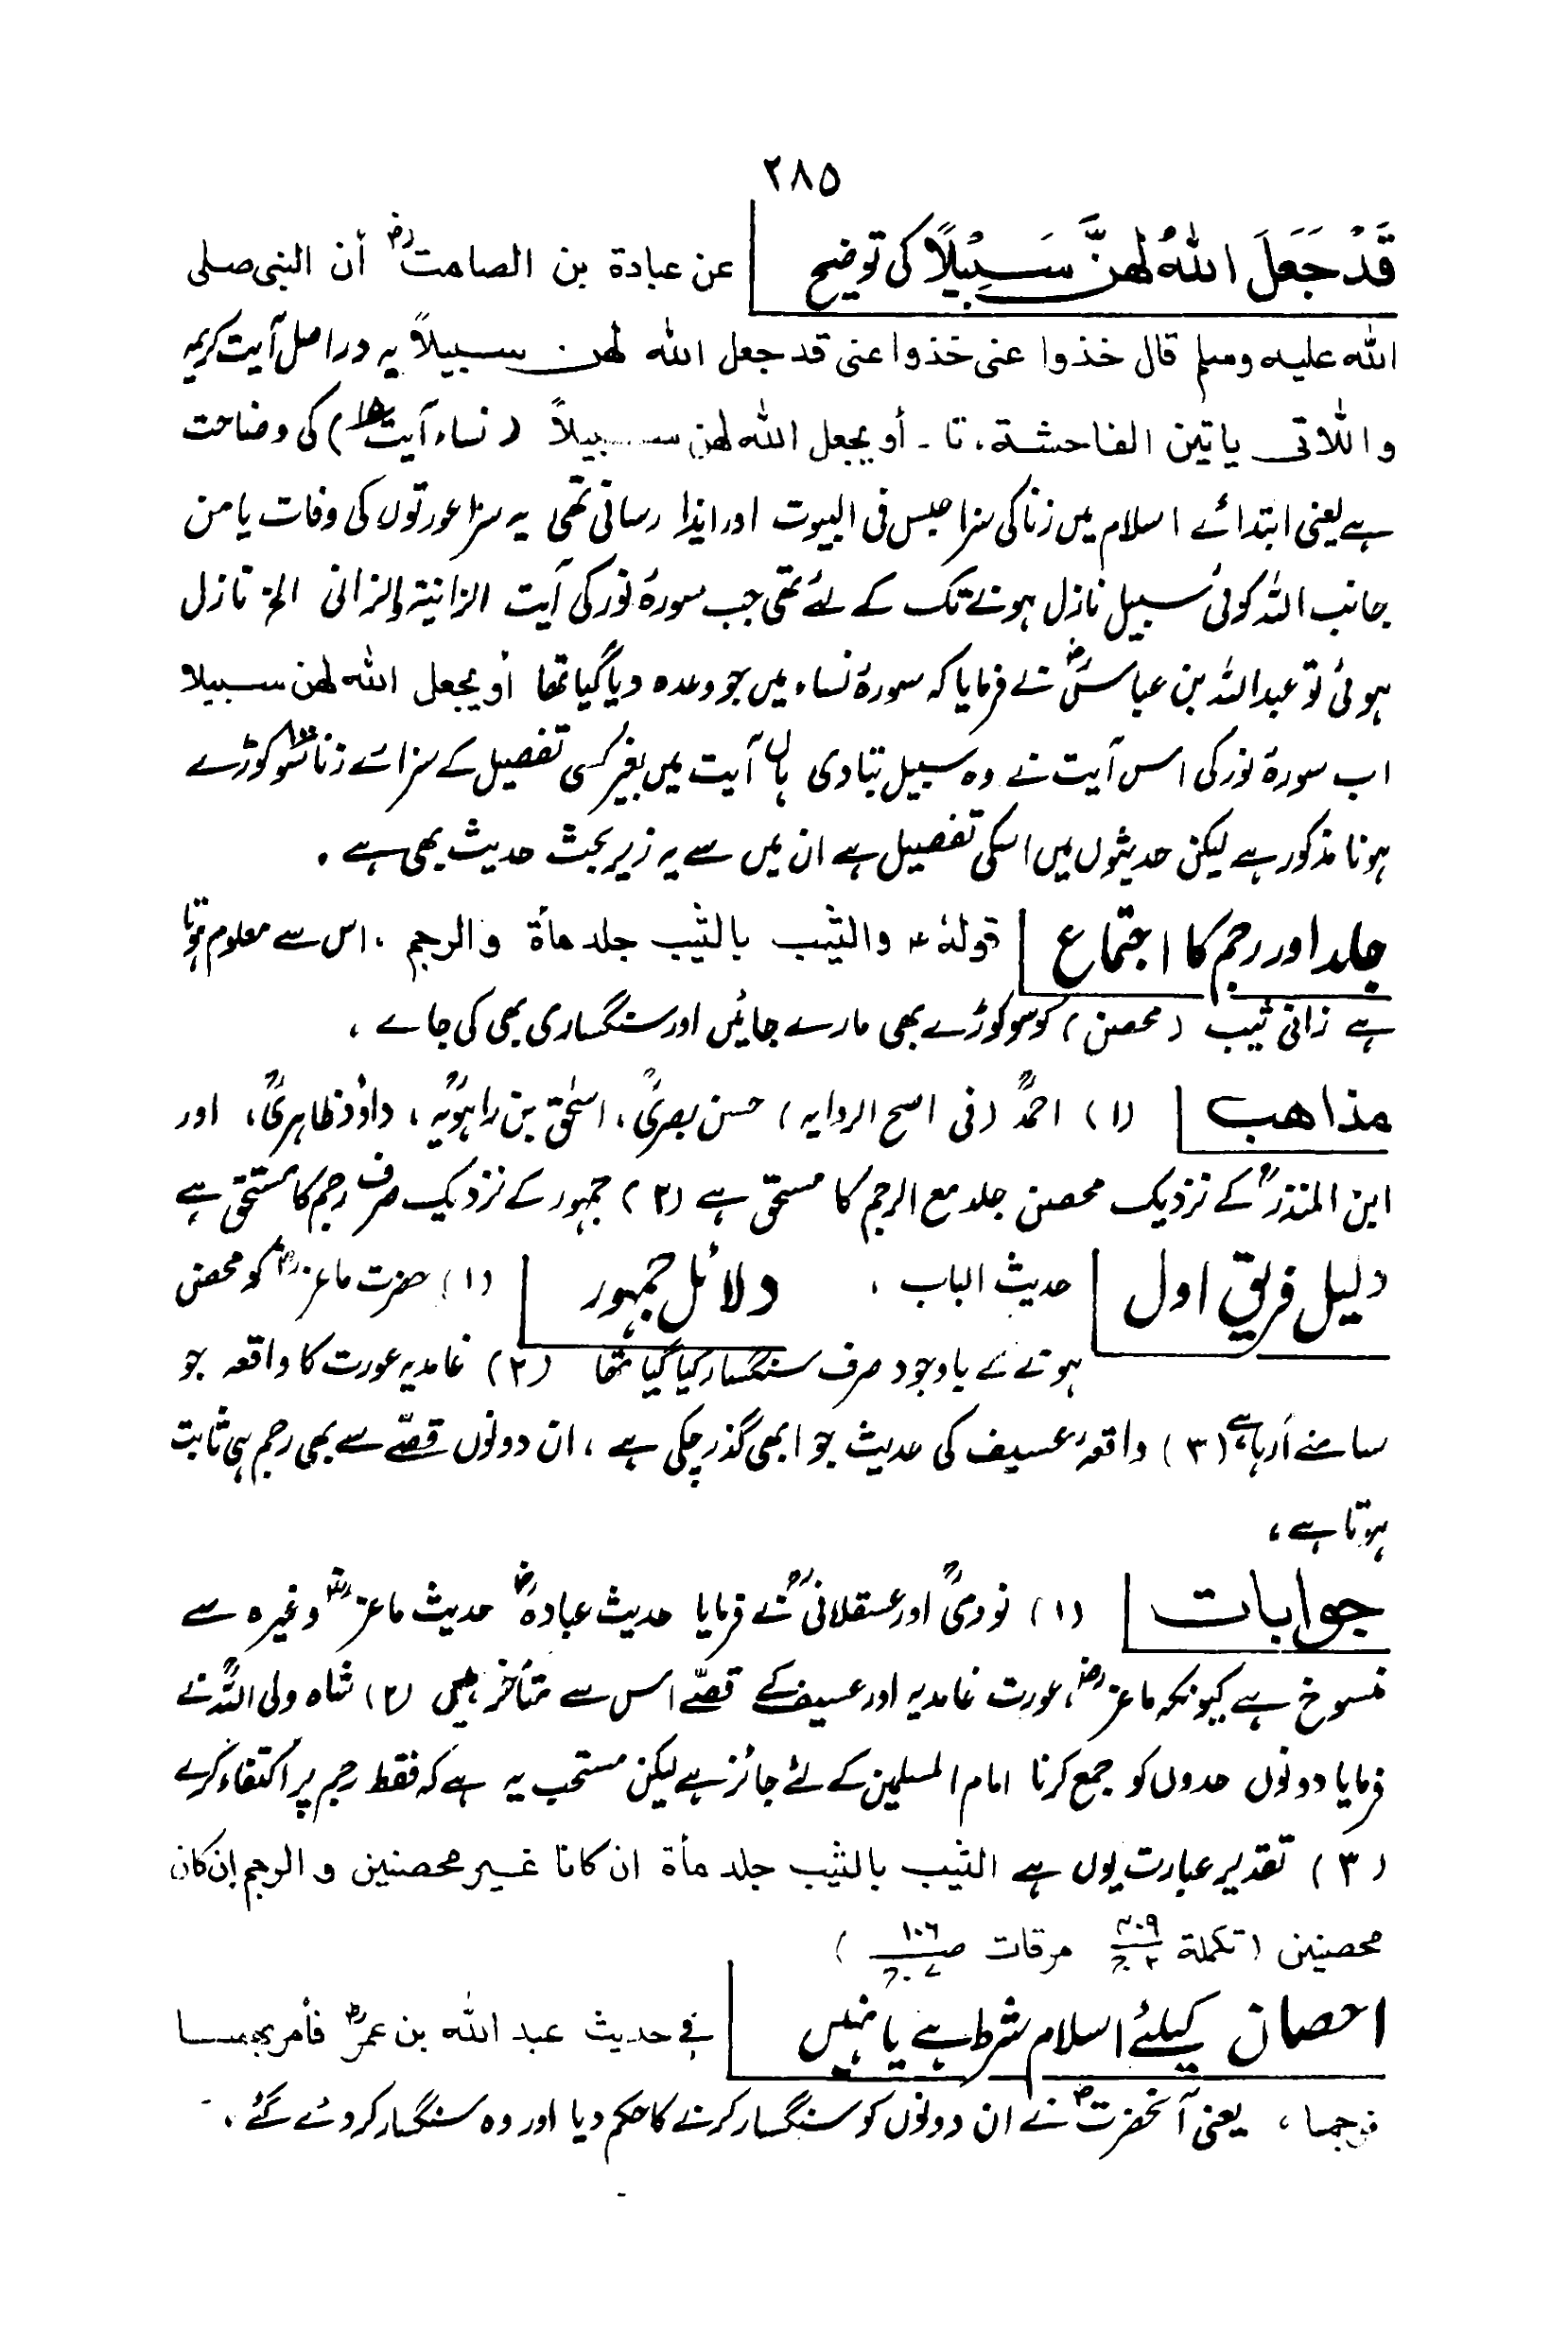 ۲۸۵
قَدْ جَعَلَ اللهُ لَهُنَّ سَبِيْلًا کی توضیح عن عبادة بن الصامتؓ أن النبی صلی
الله علیه وسلم قال خذوا عنی خذوا عنی قد جعل الله لهن سبیلاً یہ دراصل آیت کریمہ
واللاتی یاتین الفاحشة، تا۔ أو یجعل الله لهن سبیلاً (نساء آیت ۱۵) کی وضاحت
ہے یعنی ابتدائے اسلام میں زنا کی سزا حبس فی البیوت اور ایذا رسانی تھی یہ سزا عورتوں کی وفات یا من
جانب اللہ کوئی سبیل نازل ہونے تک کے لئے تھی جب سورۂ نور کی آیت الزانیة والزانی الخ نازل
ہوئی تو عبداللہ بن عباسؓ نے فرمایا کہ سورۂ نساء میں جو وعدہ دیا گیا تھا أو یجعل الله لهن سبیلا
اب سورۂ نور کی اس آیت نے وہ سبیل بتادی ہاں آیت میں بغیر کسی تفصیل کے سزائے زنا سو کوڑے
ہونا مذکور ہے لیکن حدیثوں میں اسکی تفصیل ہے ان میں سے یہ زیر بحث حدیث بھی ہے ۔
جلد اور رجم کا اجتماع قولهٗ والثیب بالثیب جلد مأة والرجم ، اس سے معلوم ہوتا
ہے زانی ثیب (محصن) کو سو کوڑے بھی مارے جائیں اور سنگساری بھی کی جاے ،
مذاهب (۱) احمدؒ (فی اصح الروایہ) حسن بصریؒ، اسحٰق بن راہویہؒ، داؤد ظاہریؒ، اور
ابن المنذرؒ کے نزدیک محصن جلد مع الرجم کا مستحق ہے (۲) جمہور کے نزدیک صرف رجم کا مستحق ہے
دلیل فریق اول حدیث الباب ، دلائل جمہور (۱) حضرت ماعزؓ کو محصن
ہونے کے باوجود صرف سنگسار کیا گیا تھا (۲) غامدیہ عورت کا واقعہ جو
سامنے آرہا ہے (۳) واقعۂ عسیف کی حدیث جو ابھی گذر چکی ہے ، ان دونوں قصّے سے بھی رجم ہی ثابت
ہوتا ہے ،
جوابات (۱) نوویؒ اور عسقلانیؒ نے فرمایا حدیث عبادہؓ حدیث ماعزؓ وغیرہ سے
منسوخ ہے کیونکہ ماعزؓ، عورت غامدیہ اور عسیف کے قصّے اس سے متأخر ہیں (۲) شاہ ولی اللہؒ نے
فرمایا دونوں حدوں کو جمع کرنا امام المسلمین کے لئے جائز ہے لیکن مستحب یہ ہے کہ فقط رجم پر اکتفاء کرے
(۳) تقدیر عبارت یوں ہے الثیب بالثیب جلد مأة ان کانا غیر محصنین و الرجم إن کان
محصنین (تکملة ۴۰۹ ج۲ مرقات صـ ۱۰۶ ج۷)
احصان کیلئے اسلام شرط ہے یا نہیں فی حدیث عبد الله بن عمرؓ فأمر بهما
فرجما ، یعنی آنحضرتؐ نے ان دونوں کو سنگسار کرنے کا حکم دیا اور وہ سنگسار کردئے گئے ،